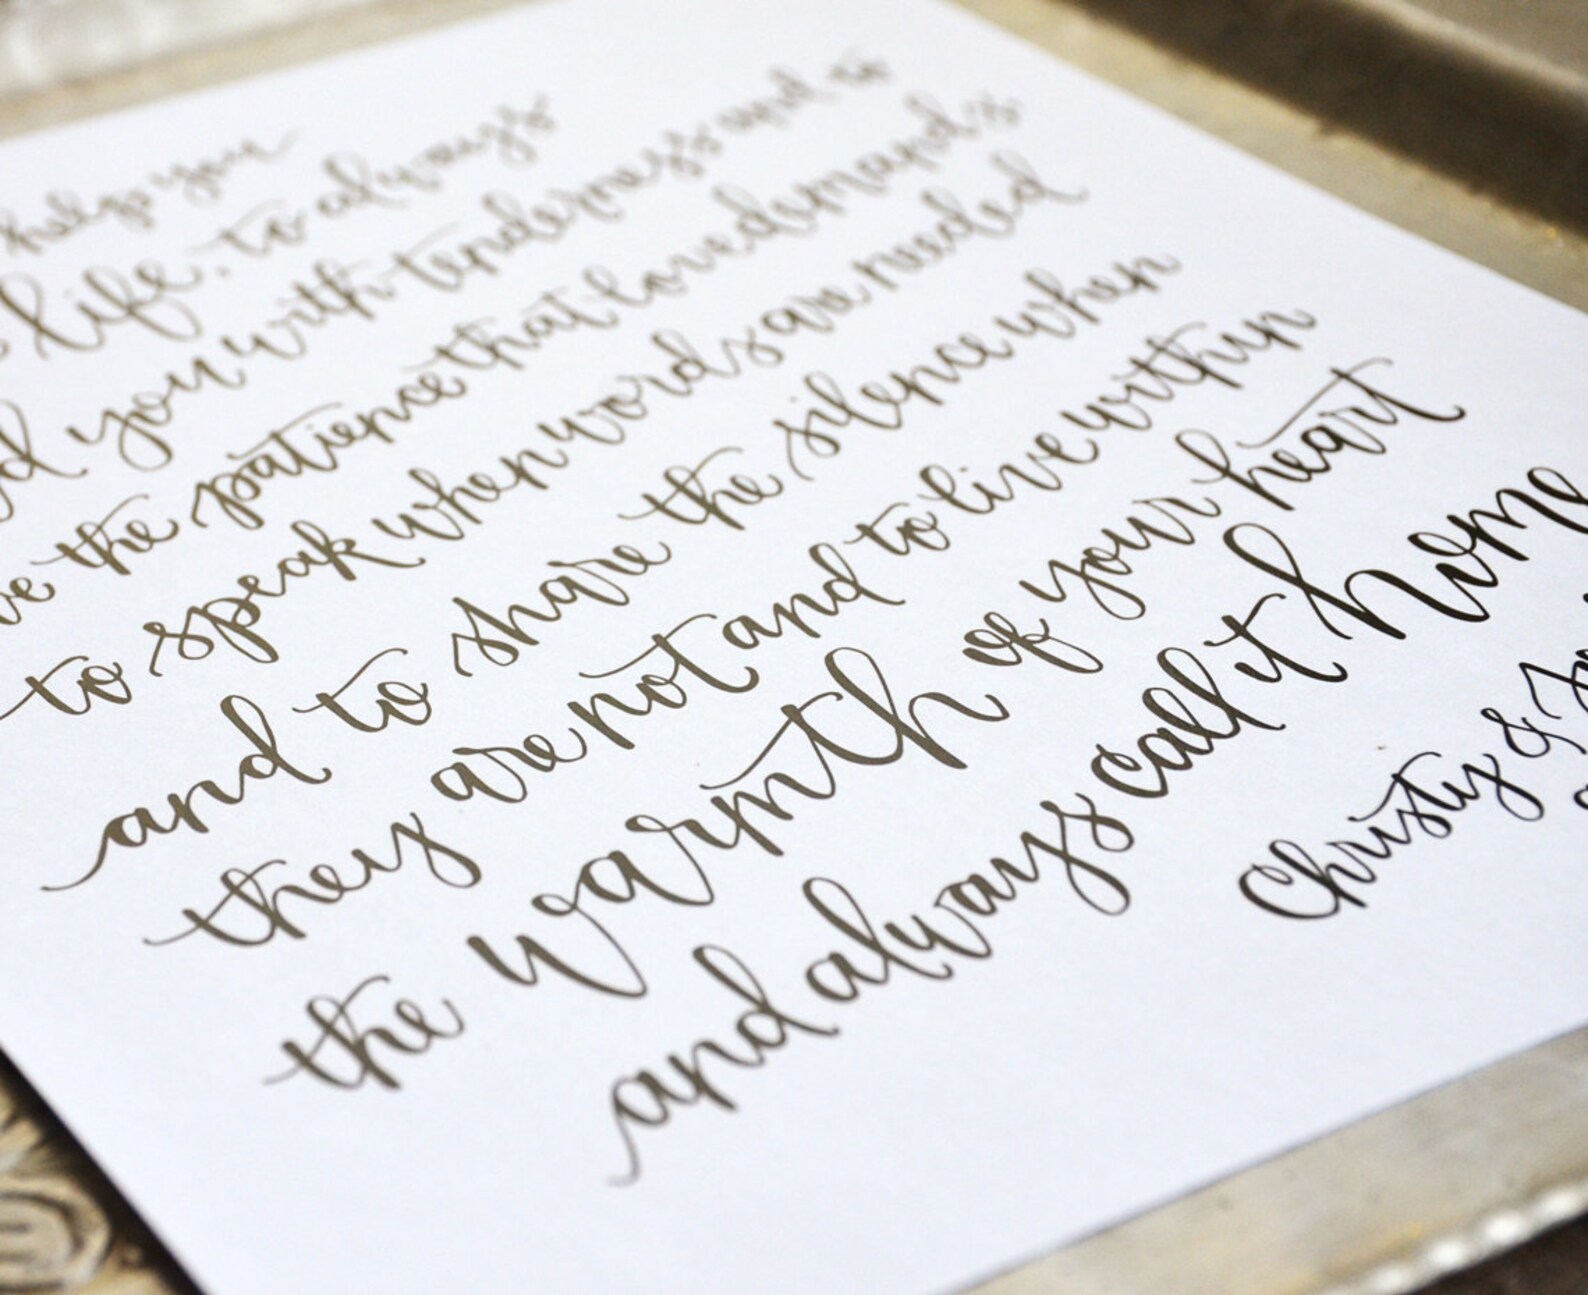 help you
life, to always
you with tenderness and to
the patience that love demands,
to speak when words are needed
and to share the silence when
they are not and to live within
the warmth of your heart
and always call it home
Christy &